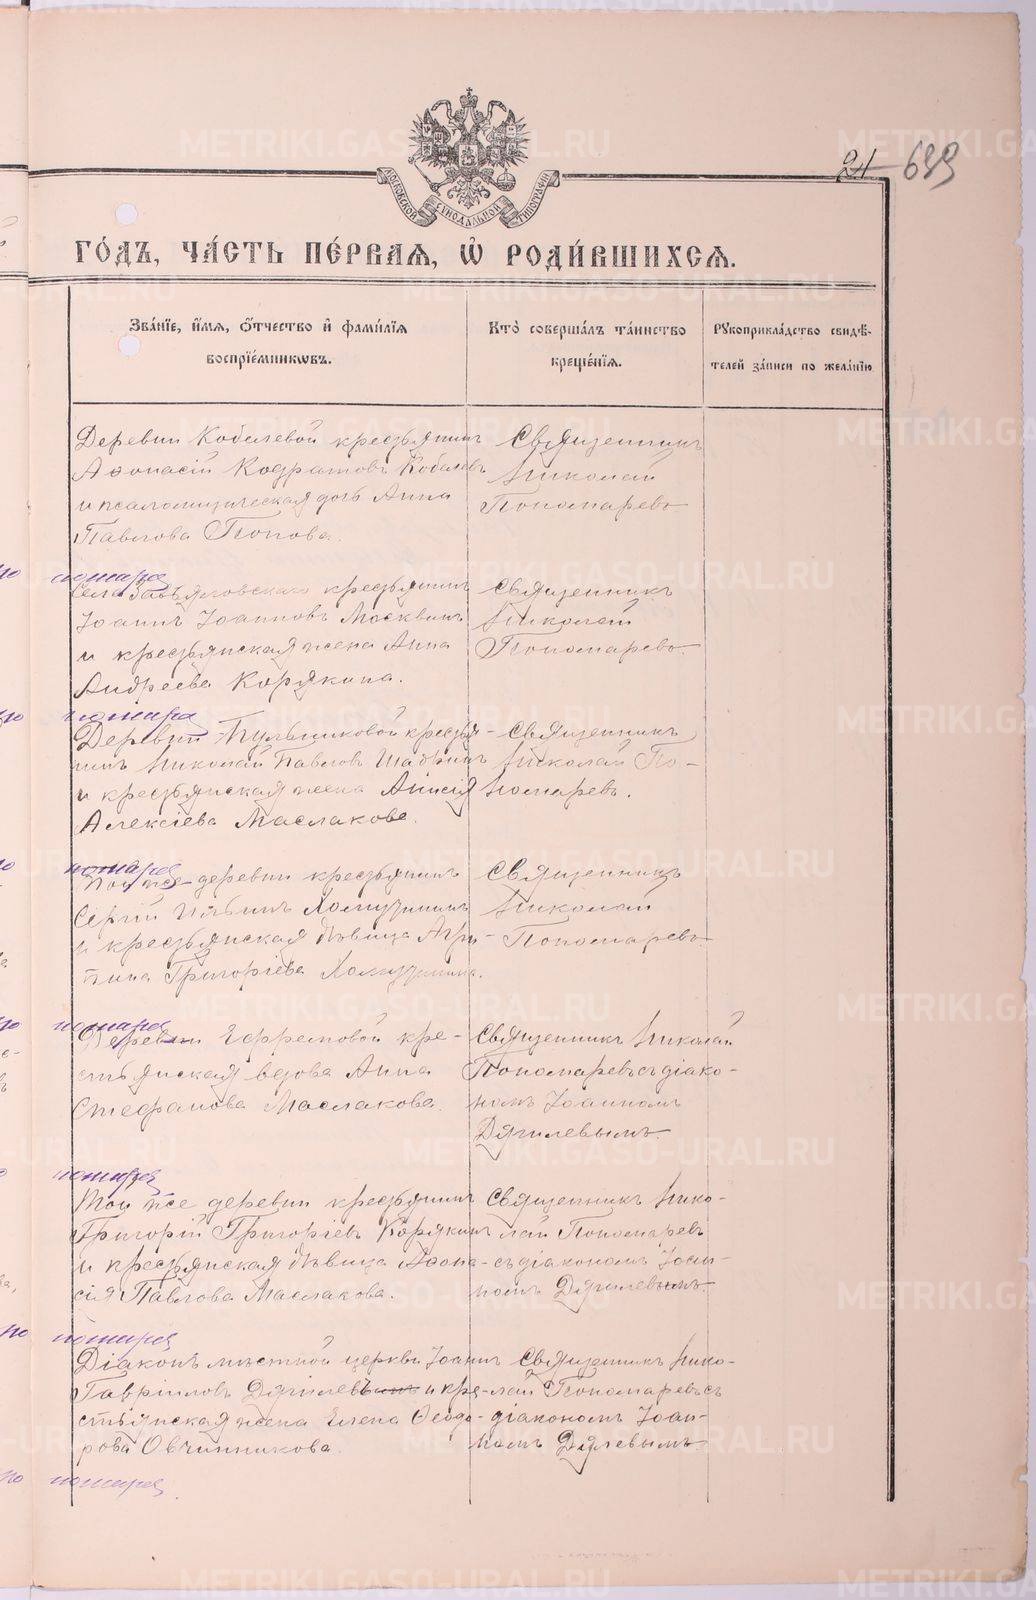 METRIKI.GASO-URAL.RU
21 — 639
МОСКОВСКОЙ СѴНОДАЛЬНОЙ ТИПОГРАФІИ
ГО́ДЪ, ЧА́СТЬ ПЕ́РВАѦ, Ѡ҆ РОДИ́ВШИХСѦ.
Зва́нїе, и҆́мѧ, ѻ҆́тчество и҆ фами́лїѧ воспрїе́мникѡвъ.
Кто̀ соверша́лъ та́инство креще́нїѧ.
Рꙋкоприкла́дство свидѣ́телей за́писи по жела́нїю
Деревни Кобелевой крестьянинъ
Аѳонасій Кодратовъ Кобелевъ
и псаломщическая дочь Анна
Павлова Попова.
Священникъ
Николай
Пономаревъ
Села Завьяловскаго крестьянинъ
Іоаннъ Іоанновъ Москвинъ
и крестьянская жена Анна
Андреева Корякина.
Священникъ
Николай
Пономаревъ.
Деревни крестья-
нинъ Николай Павловъ Шадринъ
и крестьянская жена Анисія
Алексіева Маслакова.
Священникъ
Николай По-
номаревъ.
Той же деревни крестьянинъ
Сергій Ильинъ Хомутининъ
и крестьянская дѣвица Агри-
пина Григоріева Хомутинина.
Священникъ
Николай
Пономаревъ
Деревни Ефремовой кре-
стьянская вдова Анна
Стефанова Маслакова.
Священникъ Николай
Пономаревъ съ діако-
номъ Іоанномъ
Дягилевымъ.
Той же деревни крестьянинъ
Григорій Григоріевъ Корякинъ
и крестьянская дѣвица Аѳона-
сія Павлова Маслакова.
Священникъ Нико-
лай Пономаревъ
съ діакономъ Іоан-
номъ Дягилевымъ.
Діаконъ мѣстной церкви Іоаннъ
Гавріиловъ Дягилевъ и кре-
стьянская жена Елена Ѳеодо-
рова Овчинникова.
Священникъ Нико-
лай Пономаревъ съ
діакономъ Іоан-
номъ Дягилевымъ.